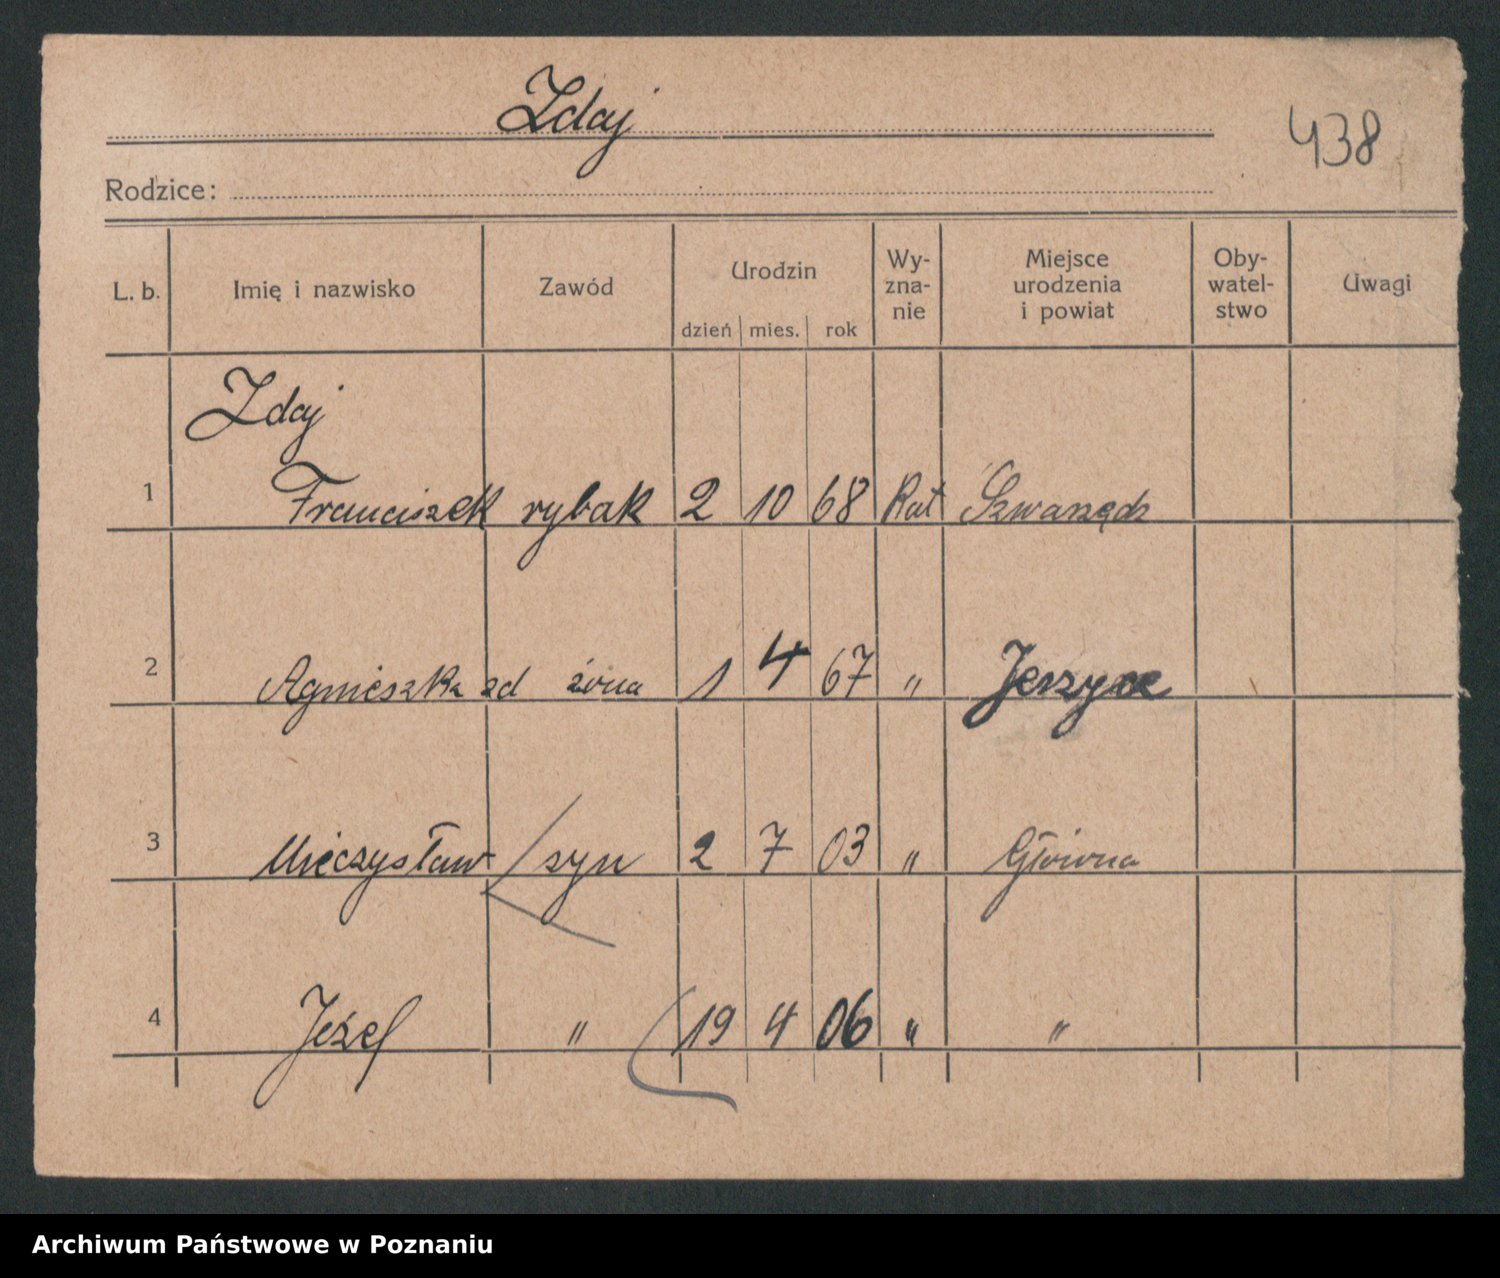 Zdaj
438
Rodzice:
L. b. Imię i nazwisko Zawód Urodzin dzień mies. rok Wy-zna-nie Miejsce urodzenia i powiat Oby-watel-stwo Uwagi
Zdaj
1 Franciszek rybak 2 10 68 Kat Szwarzędz
2 Agnieszka zd żona 1 4 67 " Jerzyce
3 Mieczysław syn 2 7 03 " Główna
4 Józef " 19 4 06 " "
Archiwum Państwowe w Poznaniu